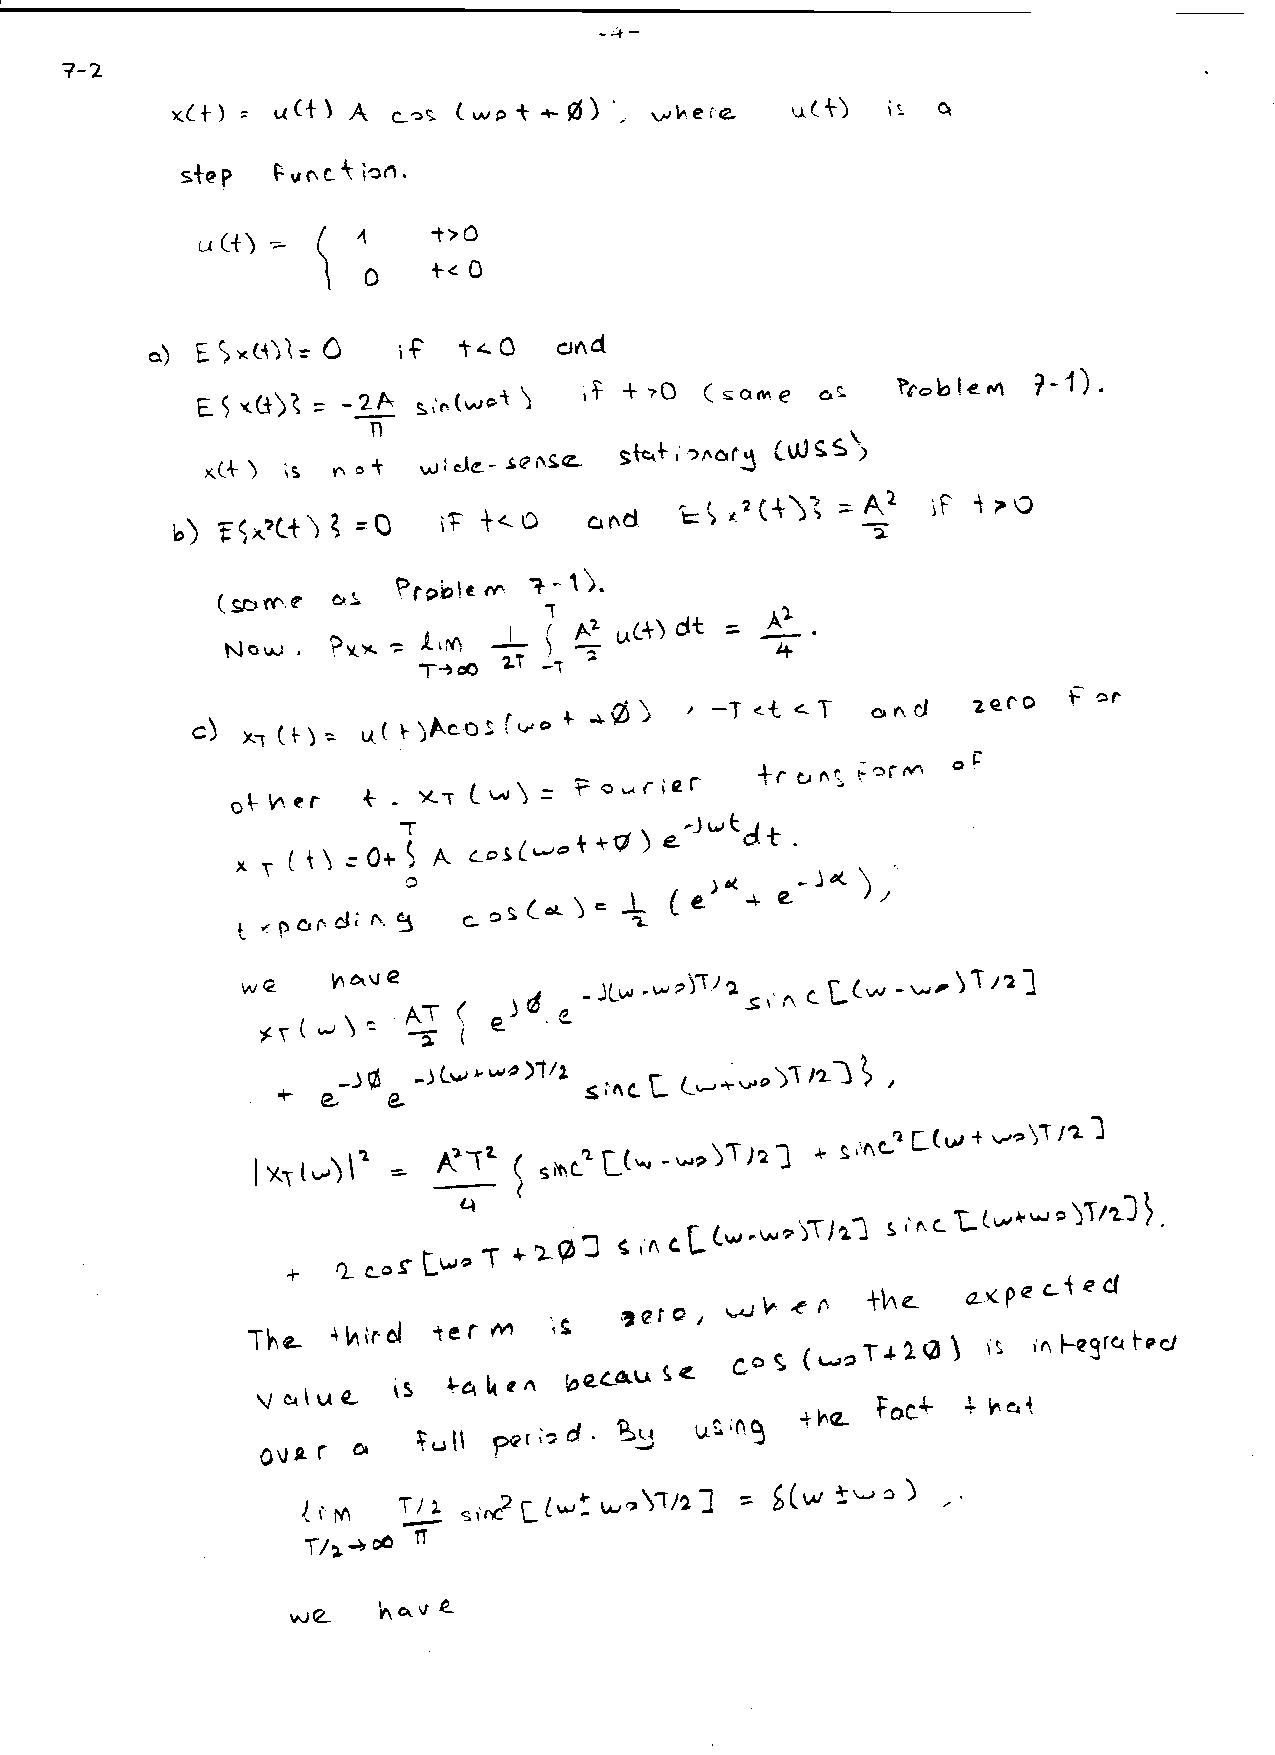 -4-
7-2
x(t) = u(t) A cos (ωot + Ø), where u(t) is a
step function.
u(t) = { 1 t>0
0 t<0
a) E{x(t)} = 0 if t<0 and
E{x(t)} = -2A/π sin(ωot) if t>0 (same as Problem 7-1).
x(t) is not wide-sense stationary (WSS)
b) E{x²(t)} = 0 if t<0 and E{x²(t)} = A²/2 if t>0
(same as Problem 7-1).
Now, Pxx = lim T→∞ 1/2T ∫_-T^T A²/2 u(t) dt = A²/4.
c) xT(t) = u(t)Acos(ωot + Ø), -T<t<T and zero for
other t. XT(ω) = Fourier transform of
xT(t) = 0+∫_0^T A cos(ωot+Ø) e^-Jωt dt.
Expanding cos(α) = 1/2 (e^Jα + e^-Jα),
we have
XT(ω) = AT/2 { e^JØ e^-J(ω-ωo)T/2 sinc[(ω-ωo)T/2]
+ e^-JØ e^-J(ω+ωo)T/2 sinc[(ω+ωo)T/2]},
|XT(ω)|² = A²T²/4 { sinc²[(ω-ωo)T/2] + sinc²[(ω+ωo)T/2]
+ 2cos[ωoT+2Ø] sinc[(ω-ωo)T/2] sinc[(ω+ωo)T/2]}.
The third term is zero, when the expected
value is taken because cos(ωoT+2Ø) is integrated
over a full period. By using the fact that
lim T/2→∞ T/2/π sinc²[(ω±ωo)T/2] = δ(ω±ωo),
we have